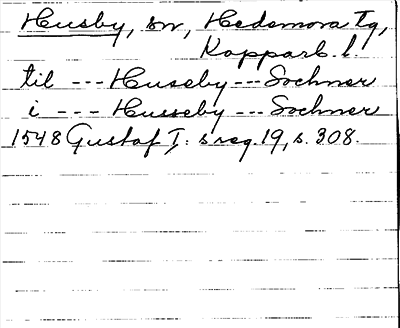 Husby, sn, Hedemora tg,
Kopparb. l.
til --- Huseby --- Sochner
i --- Husseby --- Sochner
1548 Gustaf I: s reg. 19, s. 308.